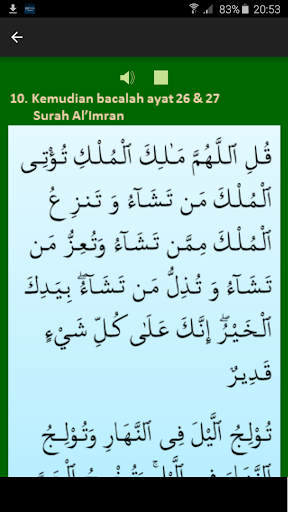 83% 20:53
10. Kemudian bacalah ayat 26 & 27
Surah Al’Imran
قُلِ ٱللَّهُمَّ مَـٰلِكَ ٱلْمُلْكِ تُؤْتِى
ٱلْمُلْكَ مَن تَشَآءُ وَ تَنزِ عُ
ٱلْمُلْكَ مِمَّن تَشَآءُ وَتُعِزُّ مَن
تَشَآءُ وَ تُذِلُّ مَن تَشَآءُۖ بِيَدِكَ
ٱلْخَيْرُۖ إِنَّكَ عَلَى كُلِّ شَيْءٍ
قَدِيرٌ
تُولِجُ ٱلَّيْلَ فِى ٱلنَّهَارِ وَتُولِجُ
ٱلنَّهَارَ فِى ٱلَّيْلِۖ